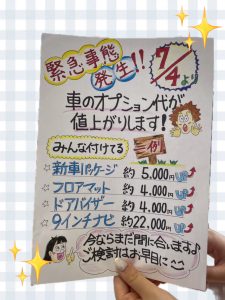 緊急事態
発生!!
7/4より
車のオプション代が
値上がりします!
みんな付けてる 三例
☆新車パッケージ 約5,000円UP
☆フロアマット 約4,000円UP
☆ドアバイザー 約4,000円UP
☆9インチナビ 約22,000円UP
今ならまだ間に合います♪
ご検討はお早目に